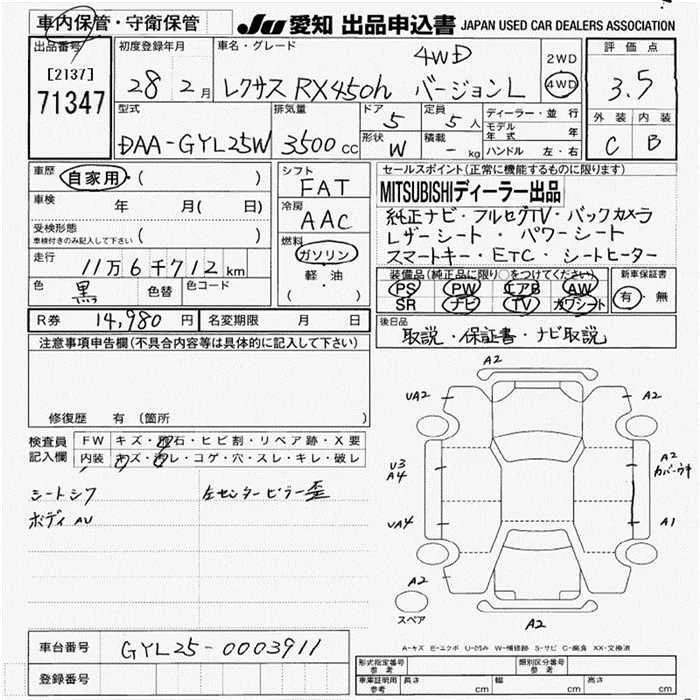 車内保管・守衛保管 JU 愛知 出品申込書 JAPAN USED CAR DEALERS ASSOCIATION
出品番号
[2137]
71347
初度登録年月
28 2月
車名・グレード
4WD
レクサス RX450h バージョンL
2WD
4WD
評価点
3.5
型式
DAA-GYL25W
排気量
3500 cc
ドア
5
定員
5 人
形状
W
積載
- kg
ディーラー・並行
モデル年式 年
ハンドル 左・右
外装 内装
C B
車歴 自家用・( )
車検 年 月( 日)
受検形態
車検付きのみ記入して下さい ( )
走行
11万6千712km
色
黒 色替 色コード
シフト
FAT
冷房
AAC
燃料
ガソリン
軽・油
( ・ )
セールスポイント(正常に機能するものに限ります)
MITSUBISHIディーラー出品
純正ナビ・フルセグTV・バックカメラ
レザーシート・パワーシート
スマートキー・ETC・シートヒーター
装備品(純正品に限り○をつけてください)
PS PW エアB AW
SR ナビ TV カワシート
新車保証書
有・無
R券 14,980 円 名変期限 月 日
後日品
取説・保証書・ナビ取説
注意事項申告欄(不具合内容等は具体的に記入して下さい)
修復歴 有 (箇所 )
検査員記入欄
FW キズ・飛石・ヒビ割・リペア跡・X要
内装 キズ・汚レ・コゲ・穴・スレ・キレ・破レ
シートシワ 左センターピラー歪
ボディAU
A2
UA2
A2
U3
A4
A2
カバーウキ
UA4
A1
A2
A2
スペア
A-キズ E-エクボ U-凹み W-補修跡 S-サビ C-腐食 XX-交換済
車台番号 GYL25-0003911
登録番号
形式指定番号 参考 類別区分番号 参考
車庫証明用 参考 長さ cm 幅 cm 高さ cm